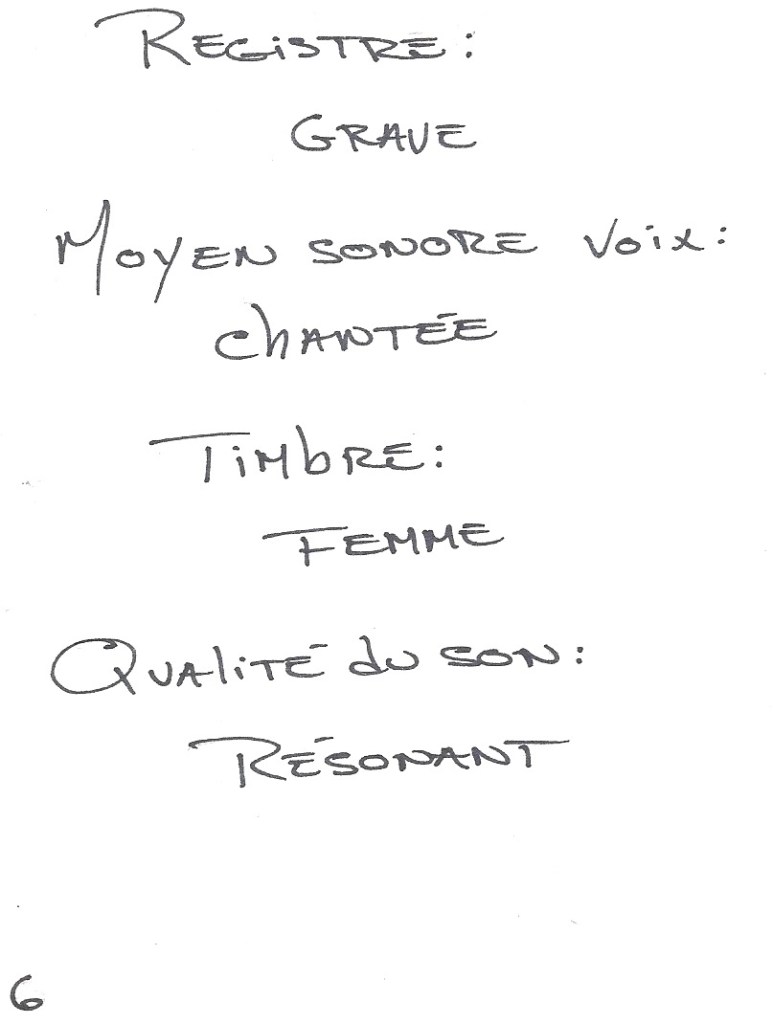 REGISTRE:
GRAVE
MOYEN SONORE VOIX:
CHANTÉE
TIMBRE:
FEMME
QUALITÉ DU SON:
RÉSONANT
6